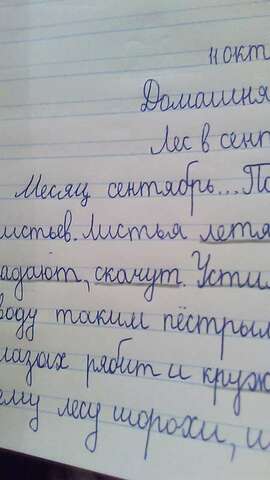 11 окт
Домашня
Лес в сент
Месяц сентябрь... По
листьев. Листья летя
адают, скачут. Усти
воду таким пёстрым
лазах рябит и круж
ему лесу шорохи, ш